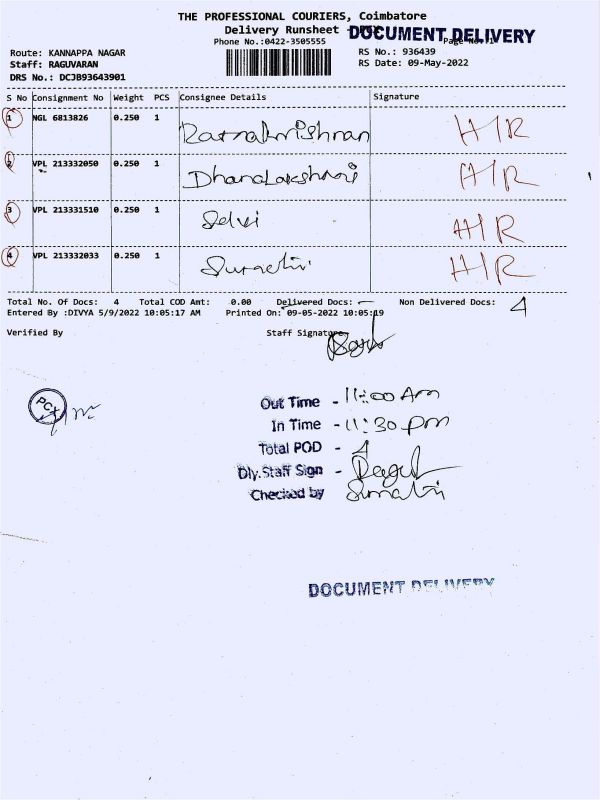 THE PROFESSIONAL COURIERS, Coimbatore
Delivery Runsheet - DOCUMENT DELIVERY
Phone No.:0422-3505555
Route: KANNAPPA NAGAR RS No.: 936439
Staff: RAGUVARAN RS Date: 09-May-2022
DRS No.: DCJB93643901
S No Consignment No Weight PCS Consignee Details Signature
1 NGL 6813826 0.250 1 Ratnakrishnan H/R
2 VPL 213332050 0.250 1 DhanaLakshmi H/R
3 VPL 213331510 0.250 1 Selvi H/R
4 VPL 213332033 0.250 1 H/R
Total No. Of Docs: 4 Total COD Amt: 0.00 Delivered Docs: — Non Delivered Docs: 4
Entered By :DIVYA 5/9/2022 10:05:17 AM Printed On: 09-05-2022 10:05:19
Verified By Staff Signature
PCX
Out Time - 11:00 Am
In Time - 11:30 pm
Total POD - 4
Dly.Staff Sign - Ragu
Checked by
DOCUMENT DELIVERY